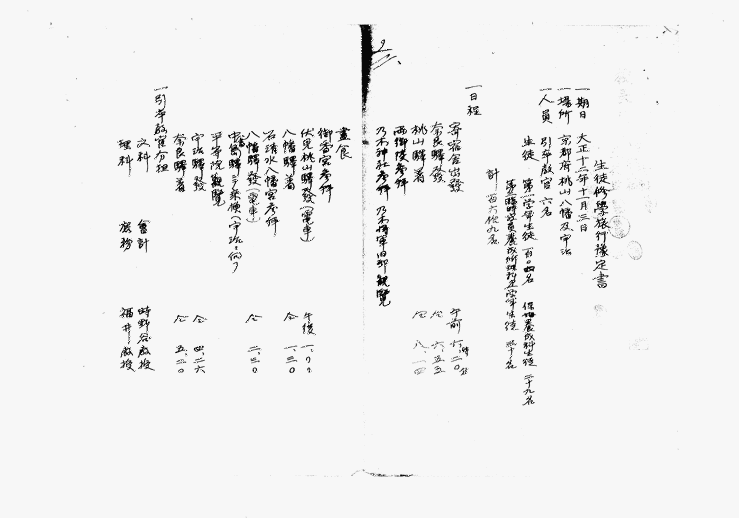 生徒修學旅行豫定書
一期日 大正十二年十一月三日
一場所 京都府桃山八幡及宇治
一人員 引率教官 六名
生徒 第一学年生徒 百〇四名 保姆養成科生徒 二十九名
第六臨時教員養成所理科第一学年生徒
計 百六十九名
一日程
寄宿舎出發 午前 六、二〇
奈良驛發 仝 六、五五
桃山驛着 仝 八、一四
両御陵参拝
乃木神社参拝 乃木将軍旧邸観覧
晝食
御香宮参拝
伏見桃山驛發(電車) 午後 一、
八幡驛着 仝 一、三〇
石清水八幡宮参拝
八幡驛發(電車) 仝 二、三〇
中書島驛ニテ乗換(宇治ニ向フ)
平等院観覧
宇治驛發 仝 四、二六
奈良驛着 仝 五、二〇
一引率教官分担
文科 會計 時野谷教授
理科 庶務 福井教授